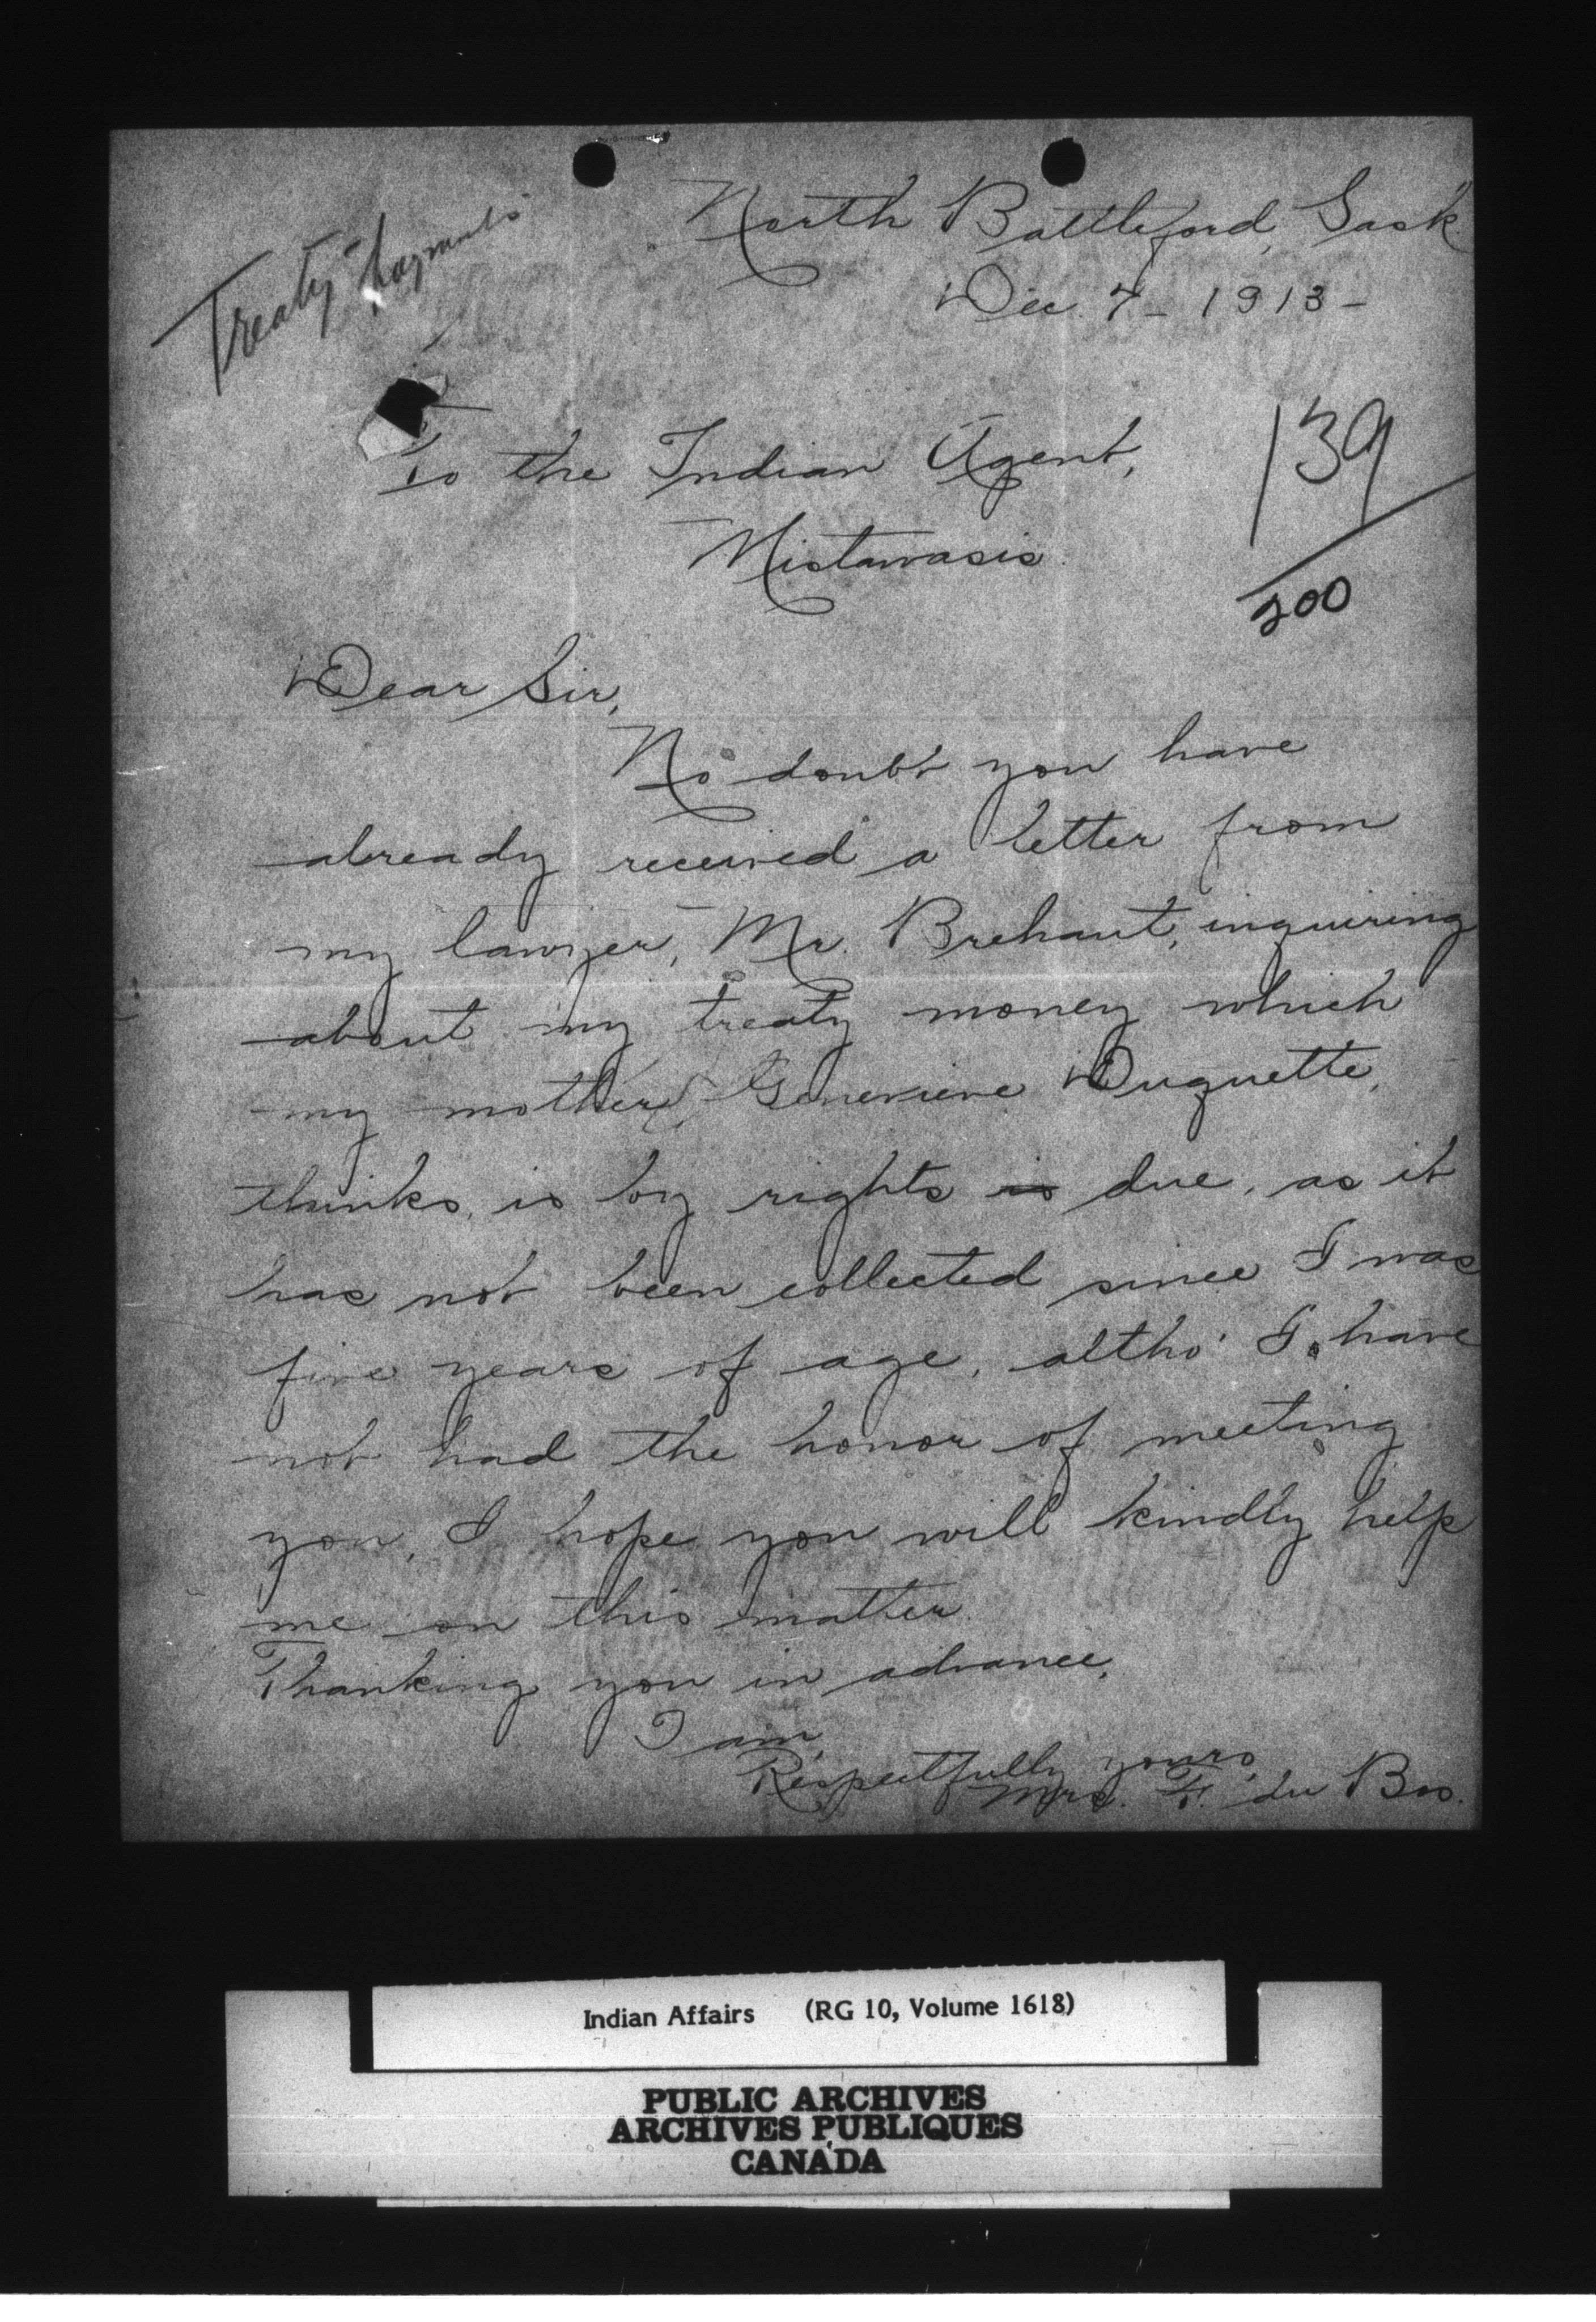 North Battleford, Sask.
Dec. 7 - 1913 -
Treaty payments
To the Indian Agent,
Mistawasis.
139
200
Dear Sir,
No doubt you have
already received a letter from
my lawyer, Mr. Brehaut, inquiring
about my treaty money which
my mother, Genevieve Duquette,
thinks, is by rights is due, as it
has not been collected since I was
five years of age, altho' I have
not had the honor of meeting
you, I hope you will kindly help
me on this matter.
Thanking you in advance,
I am,
Respectfully yours,
Mrs. F. du Bos.
Indian Affairs (RG 10, Volume 1618)
PUBLIC ARCHIVES
ARCHIVES PUBLIQUES
CANADA